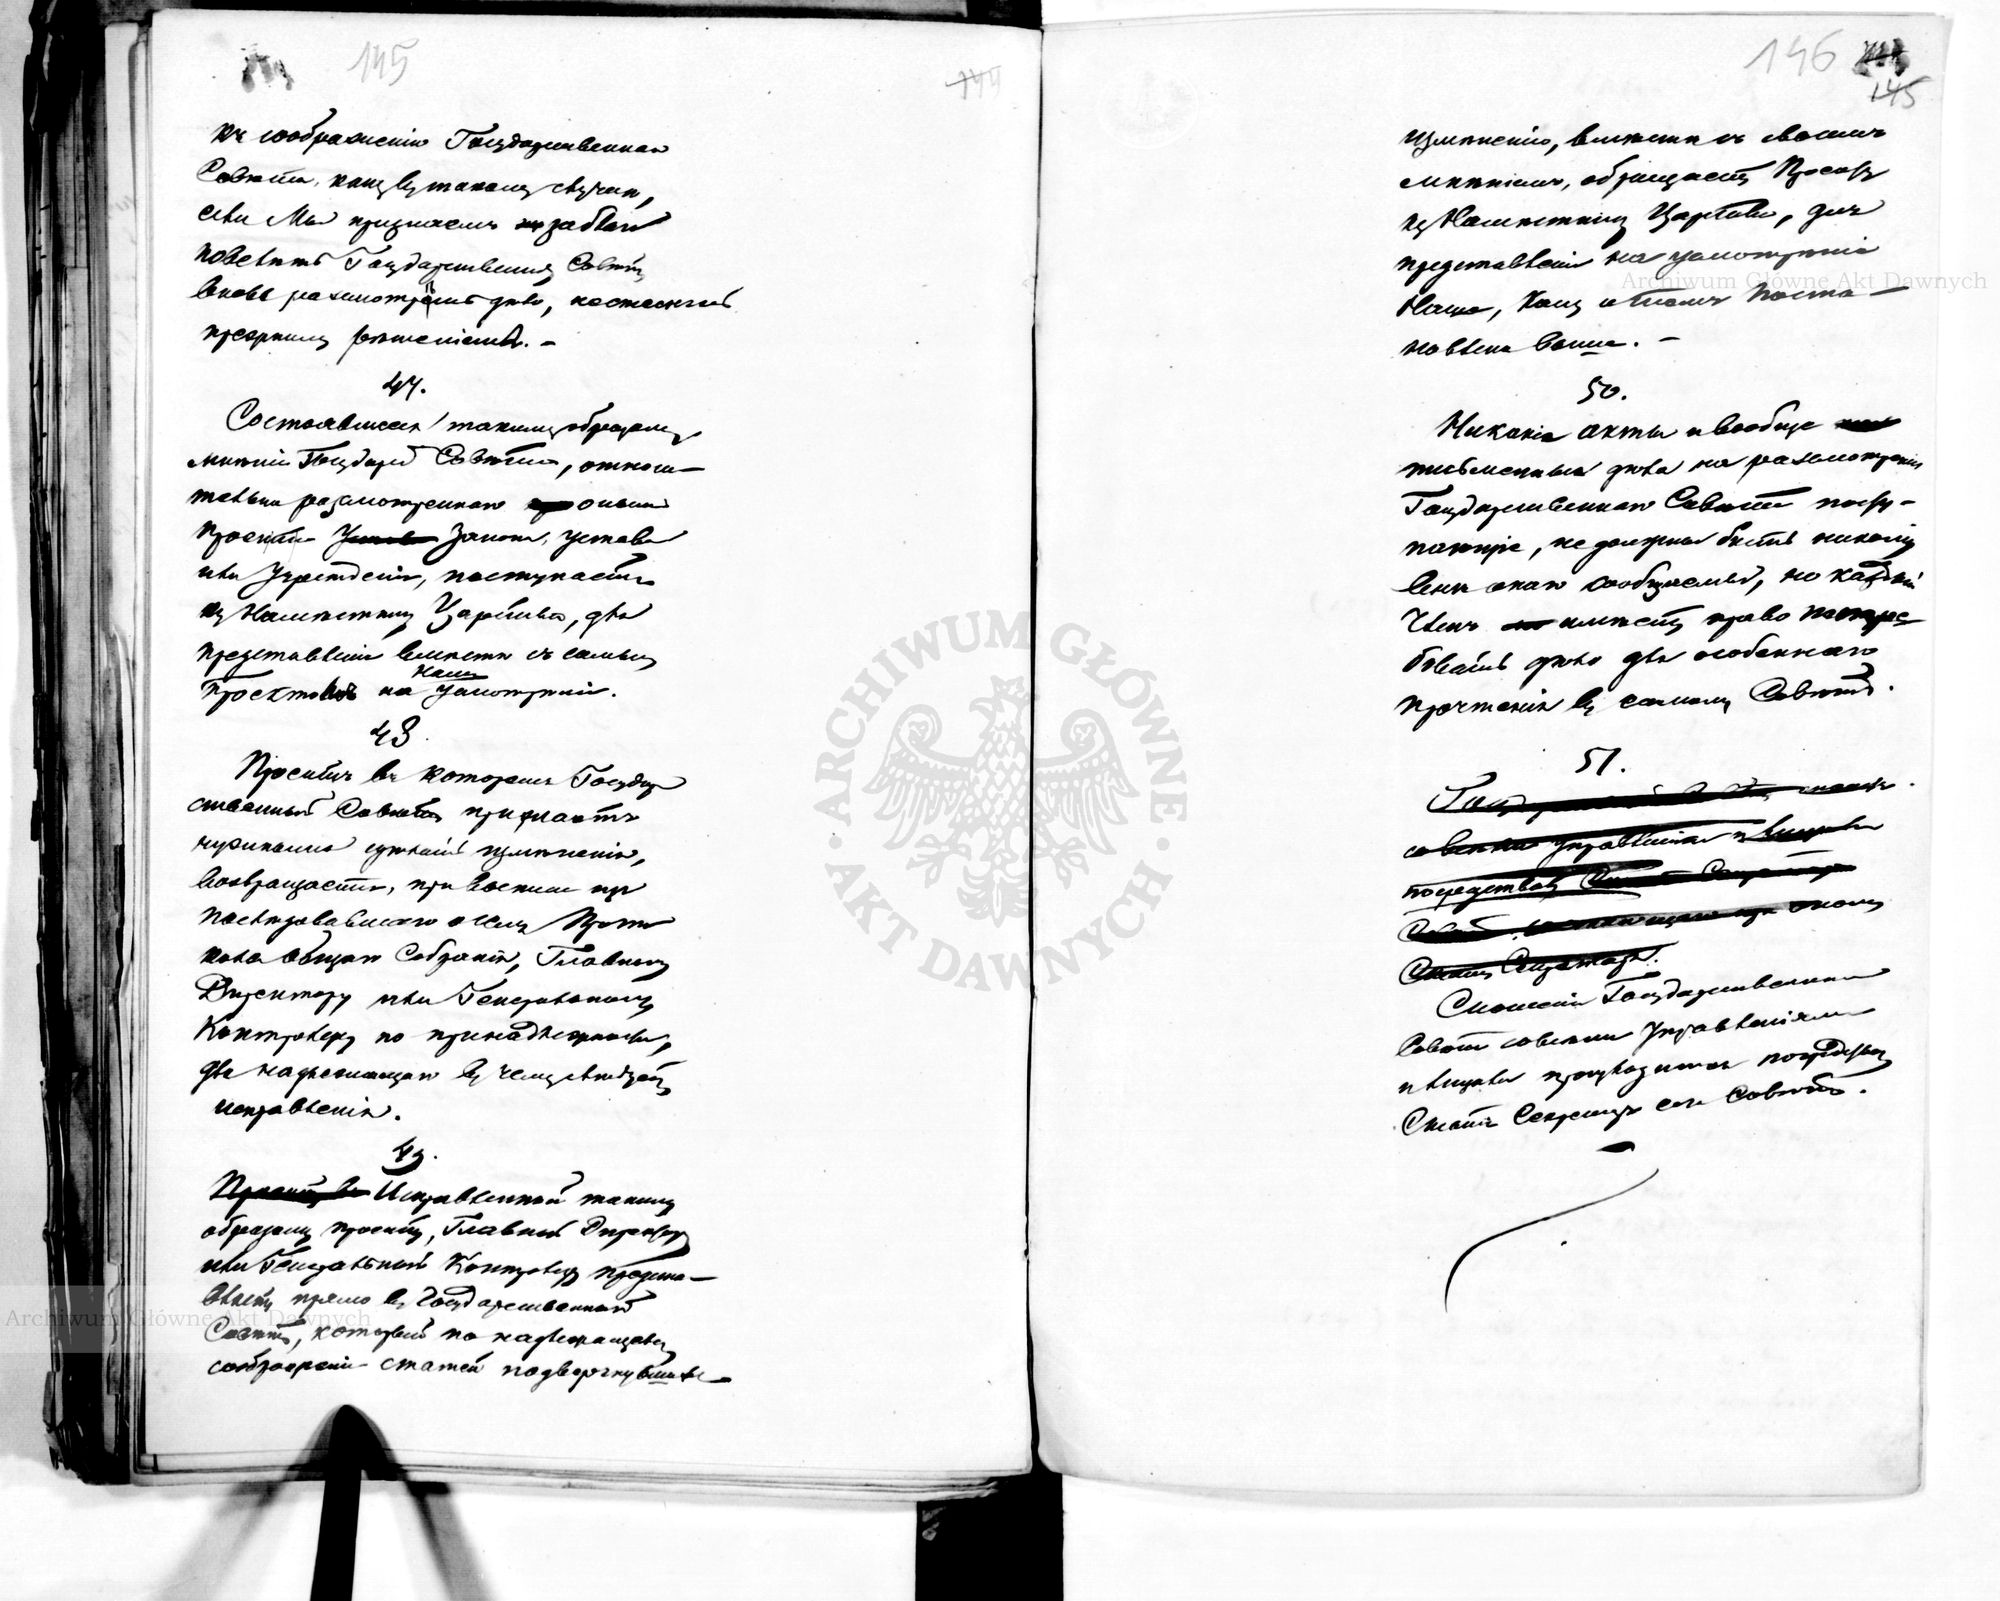 145
144
къ соображенію Государственнаго
Совѣта, какъ въ такомъ случаѣ,
если Мы признаемъ за благо
повелѣть Государственному Совѣту
вновь разсмотрѣть дѣло, не стѣсняясь
прежнимъ рѣшеніемъ. —
47.
Состоявшееся такимъ образомъ
мнѣніе Государ Совѣта, относи-
тельно разсмотреннаго онымъ
Проекта Закона, устава
или Учрежденія, поступаетъ
къ Намѣстнику Царства, для
представленія вмѣстѣ съ самымъ
Проектомъ на Наше
усмотрѣніе.
48.
Проектъ въ которомъ Государ
ственный Совѣтъ признаетъ
нужнымъ сдѣлать измѣненія,
возвращается, при выпискѣ изъ
послѣдовавшаго о семъ Прото
кола общаго Собранія, Главному
Директору или Генеральному
Контролеру по принадлежности,
для надлежащаго въ чемъ слѣдуетъ
исправленія.
49.
Исправленный такимъ
образомъ проектъ, Главный Директоръ
или Генеральный Контролеръ предста-
вляетъ прямо въ Государственный
Совѣтъ, который по надлежащемъ
соображеніи статей подвергнувшихся
146
145
измѣненію, вмѣстѣ съ своимъ
мнѣніемъ, обращаетъ Проектъ
къ Намѣстнику Царства, для
представленія на усмотрѣніе
Наше, какъ о томъ поста—
новлено выше. —
50.
Никакіе акты и вообще
письменныя дѣла на разсмотреніе
Государственнаго Совѣта посту-
пающіе, не должны быть никому
внѣ онаго сообщаемы, но каждый
Членъ имѣетъ право потре
бовать дѣло для особеннаго
прочтенія въ самомъ Совѣтѣ.
51.
Сношенія Государственнаго
Совѣта со всѣми Управленіями
и лицами производятся посредствомъ
Статсъ Секретаря сего Совѣта.
ARCHIWUM GŁÓWNE · AKT DAWNYCH ·
Archiwum Główne Akt Dawnych
Archiwum Główne Akt Dawnych